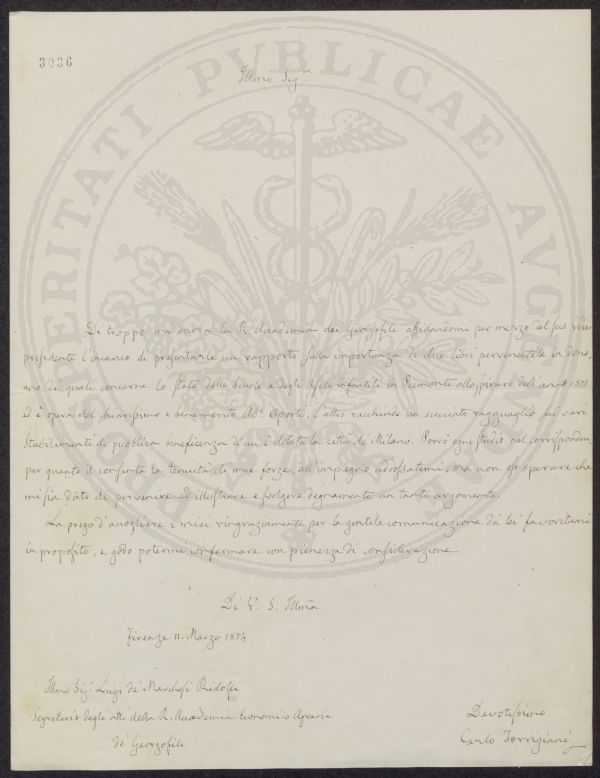 3036
PROSPERITATI PVBLICAE AVGENDAE
Illmo Sigre
Di troppo mi onora la R. Accademia dei Georgofili affidandomi per mezzo del suo Vice
presidente l'incarico di presentarle un rapporto sulla importanza di due libri pervenutile in dono,
uno di quali concerne lo stato delle Scuole e degli Asili infantili in Piemonte allo spirare dell'anno 1853
ed è opera del chiarissimo e benemerito Abe. Aporti, l'altro racchiude un succinto ragguaglio sui vari
Stabilimenti di pubblica beneficenza di cui è dotata la città di Milano. Porrò ogni studio nel corrispondere
per quanto il consenta la tenuità di mie forze, all'impegno addossatomi, ma non oso sperare che
mi sia dato di pervenire ad illustrare e svolgere degnamente un tanto argomento.
La prego d'accogliere i miei ringraziamenti per la gentile comunicazione da lei favoritami
in proposito, e godo potermi confermare con pienezza di considerazione
Di V. S. Illma
Firenze 11. Marzo 1854
Illmo Sigr. Luigi de' Marchesi Ridolfi
Segretario degli atti della R. Accademia Economico Agraria
de' Georgofili
Devotissimo
Carlo Torrigiani